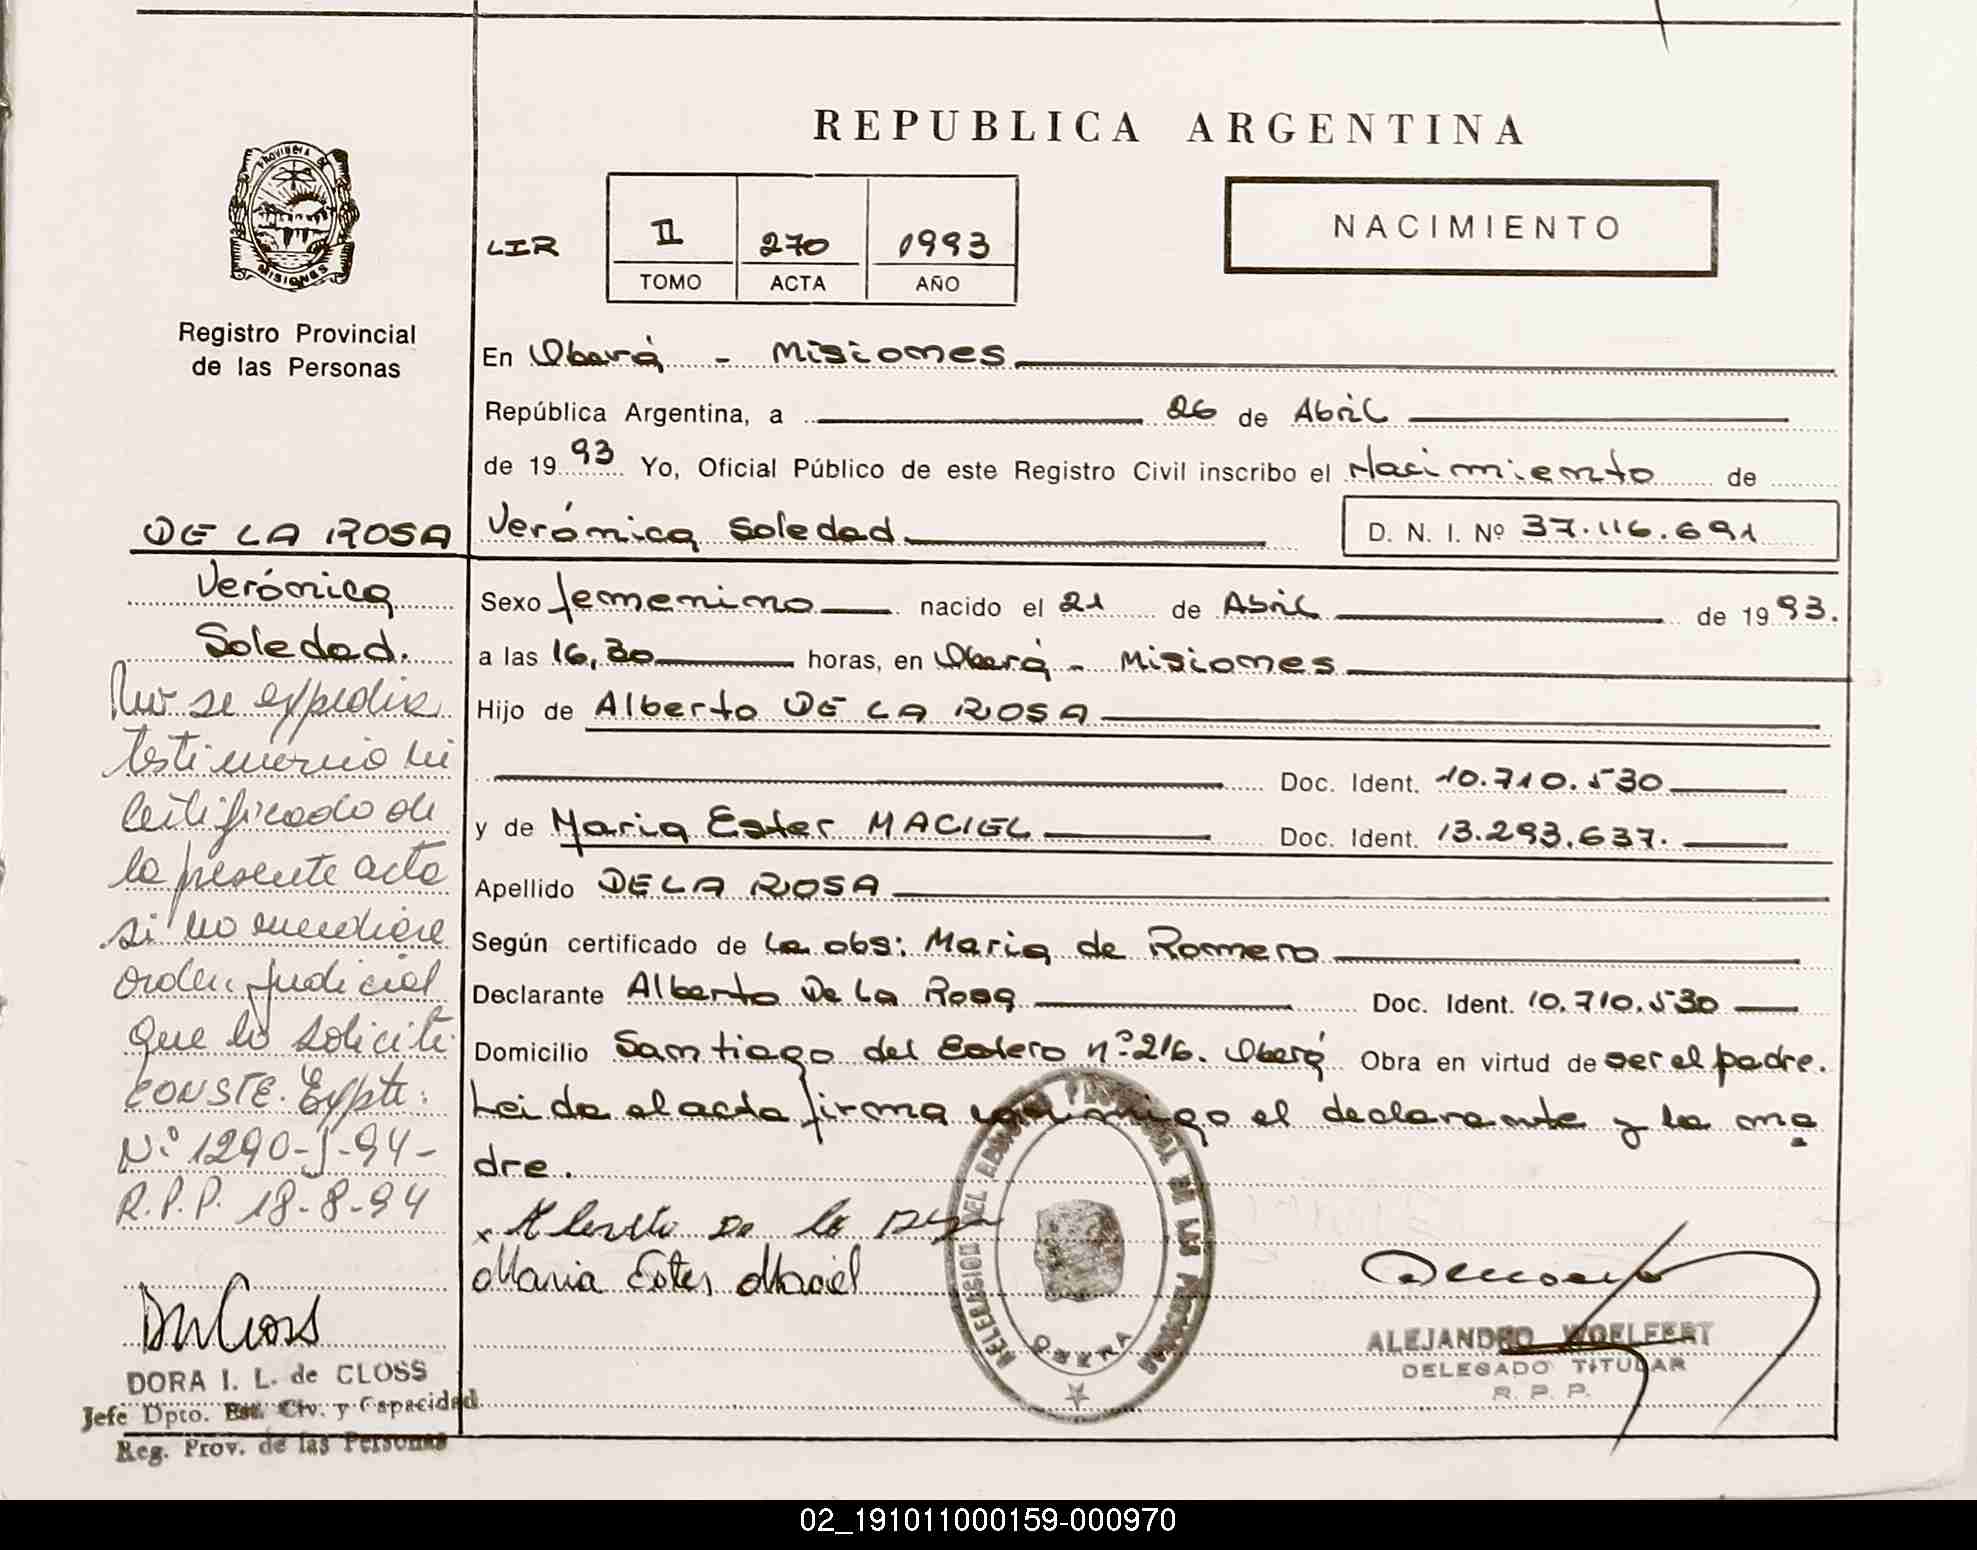 REPUBLICA ARGENTINA
PROVINCIA DE
MISIONES
Registro Provincial
de las Personas
LIR
II 270 1993
TOMO ACTA AÑO
NACIMIENTO
En Oberá - Misiones
República Argentina, a 26 de Abril
de 1993 Yo, Oficial Público de este Registro Civil inscribo el Nacimiento de
Verónica Soledad D. N. I. Nº 37.116.691
Sexo femenino nacido el 21 de Abril de 1993.
a las 16,30 horas, en Oberá - Misiones
Hijo de Alberto DE LA ROSA
Doc. Ident. 10.710.530
y de Maria Ester MACIEL Doc. Ident. 13.293.637.
Apellido DE LA ROSA
Según certificado de la obs: Maria de Romero
Declarante Alberto De La Rosa Doc. Ident. 10.710.530
Domicilio Santiago del Estero nº 216. Oberá Obra en virtud de ser el padre.
Leida el acta firma conmigo el declarante y la ma
dre.
Alberto De la Rosa
Maria Ester Maciel
DE LA ROSA
Verónica
Soledad.
No se expedira
testimonio ni
certificado de
la presente acta
si no mediare
orden judicial
que lo solicite
CONSTE. Expte:
Nº 1290-J-94-
R.P.P. 18-8-94
DORA I. L. de CLOSS
Jefe Dpto. Est. Civ. y Capacidad
Reg. Prov. de las Personas
OBERA
ALEJANDRO WOELFERT
DELEGADO TITULAR
R. P. P.
02_191011000159-000970